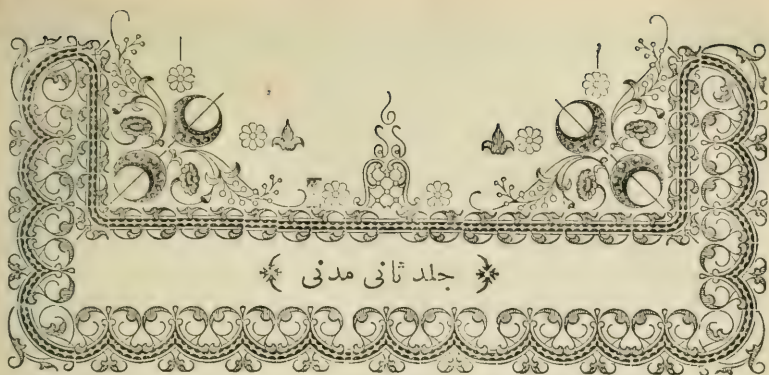 جلد ثانی مدنی